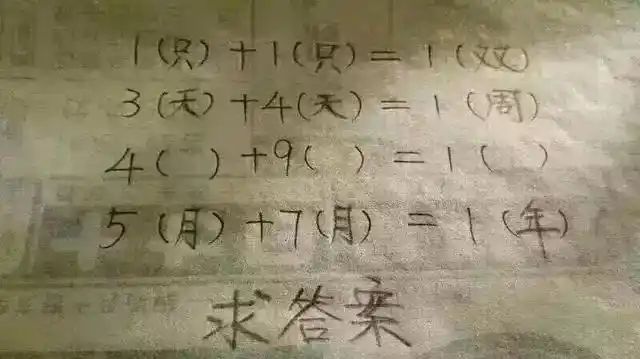 1(只)+1(只)=1(双)
3(天)+4(天)=1(周)
4( )+9( )=1( )
5(月)+7(月)=1(年)
求答案